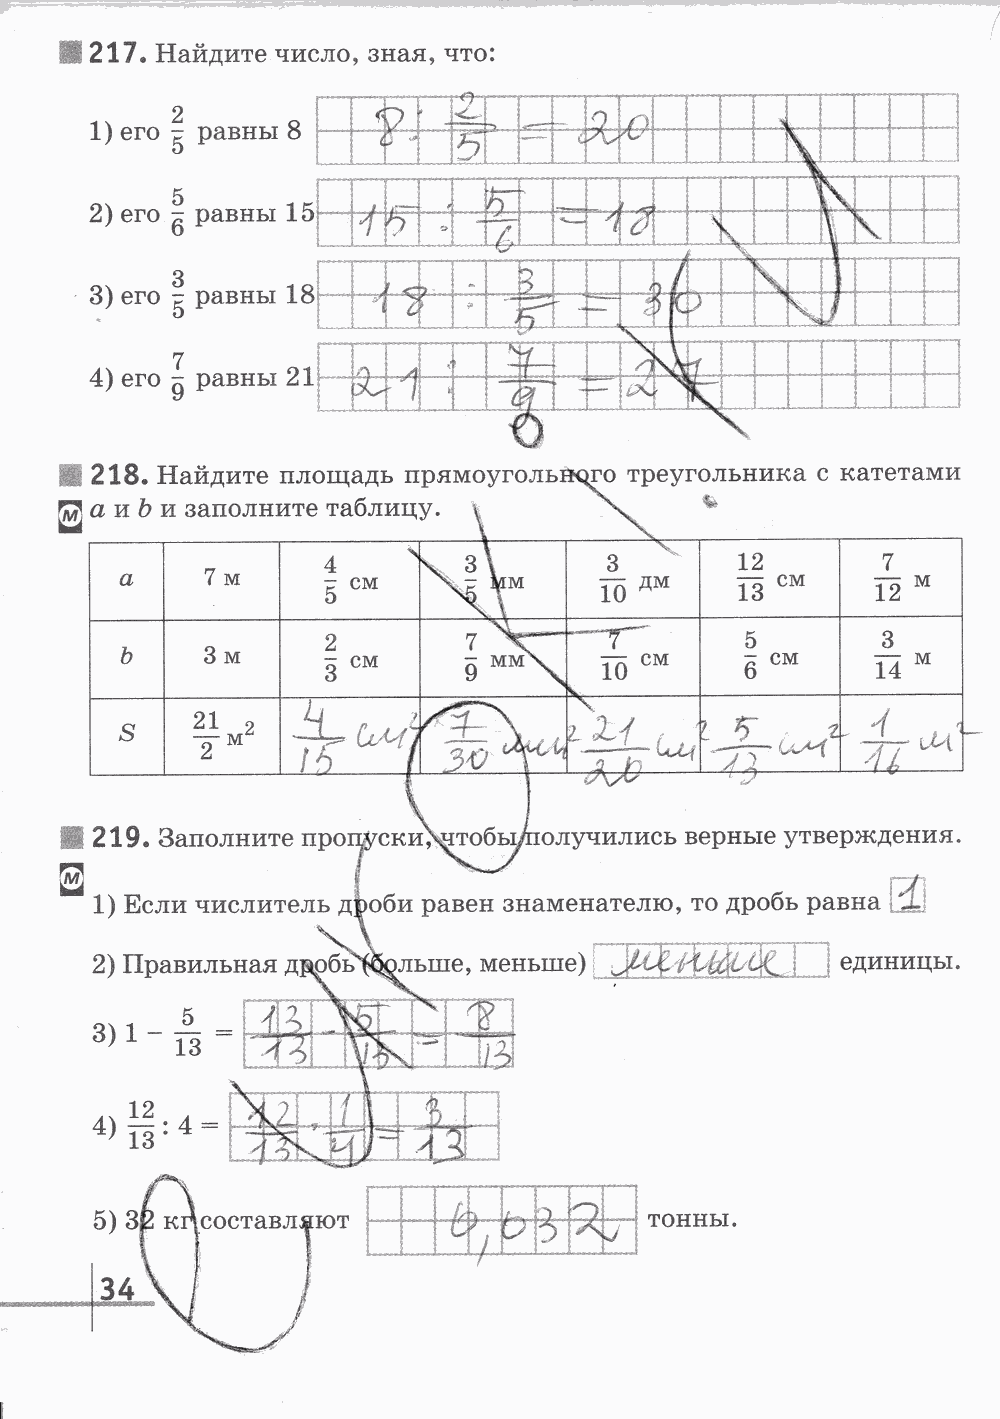 217. Найдите число, зная, что:
1) его 2/5 равны 8 8 : 2/5 = 20
2) его 5/6 равны 15 15 : 5/6 = 18
3) его 3/5 равны 18 18 : 3/5 = 30
4) его 7/9 равны 21 21 : 7/9 = 27
218. Найдите площадь прямоугольного треугольника с катетами
М a и b и заполните таблицу.
a 7 м 4/5 см 3/5 мм 3/10 дм 12/13 см 7/12 м
b 3 м 2/3 см 7/9 мм 7/10 см 5/6 см 3/14 м
S 21/2 м² 4/15 см² 7/30 мм² 21/20 см² 5/13 см² 1/16 м²
219. Заполните пропуски, чтобы получились верные утверждения.
М
1) Если числитель дроби равен знаменателю, то дробь равна 1
2) Правильная дробь (больше, меньше) меньше единицы.
3) 1 − 5/13 = 13/13 - 5/13 = 8/13
4) 12/13 : 4 = 12/13 · 1/4 = 3/13
5) 32 кг составляют 0,032 тонны.
34